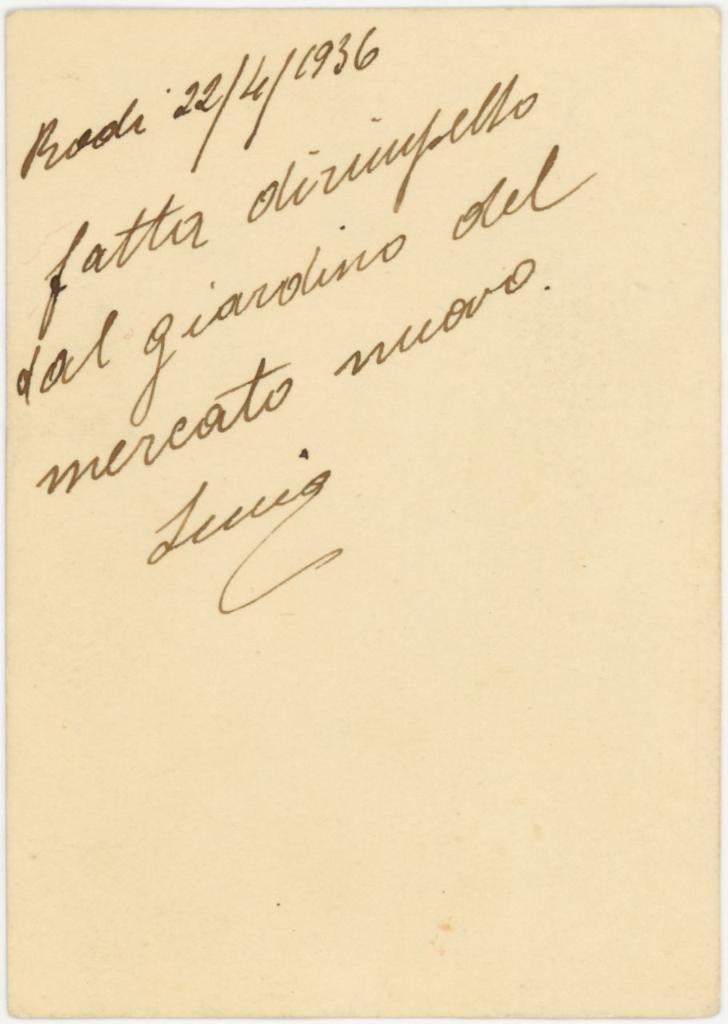 Rodi 22/4/1936
fatta dirimpetto
dal giardino del
mercato nuovo.